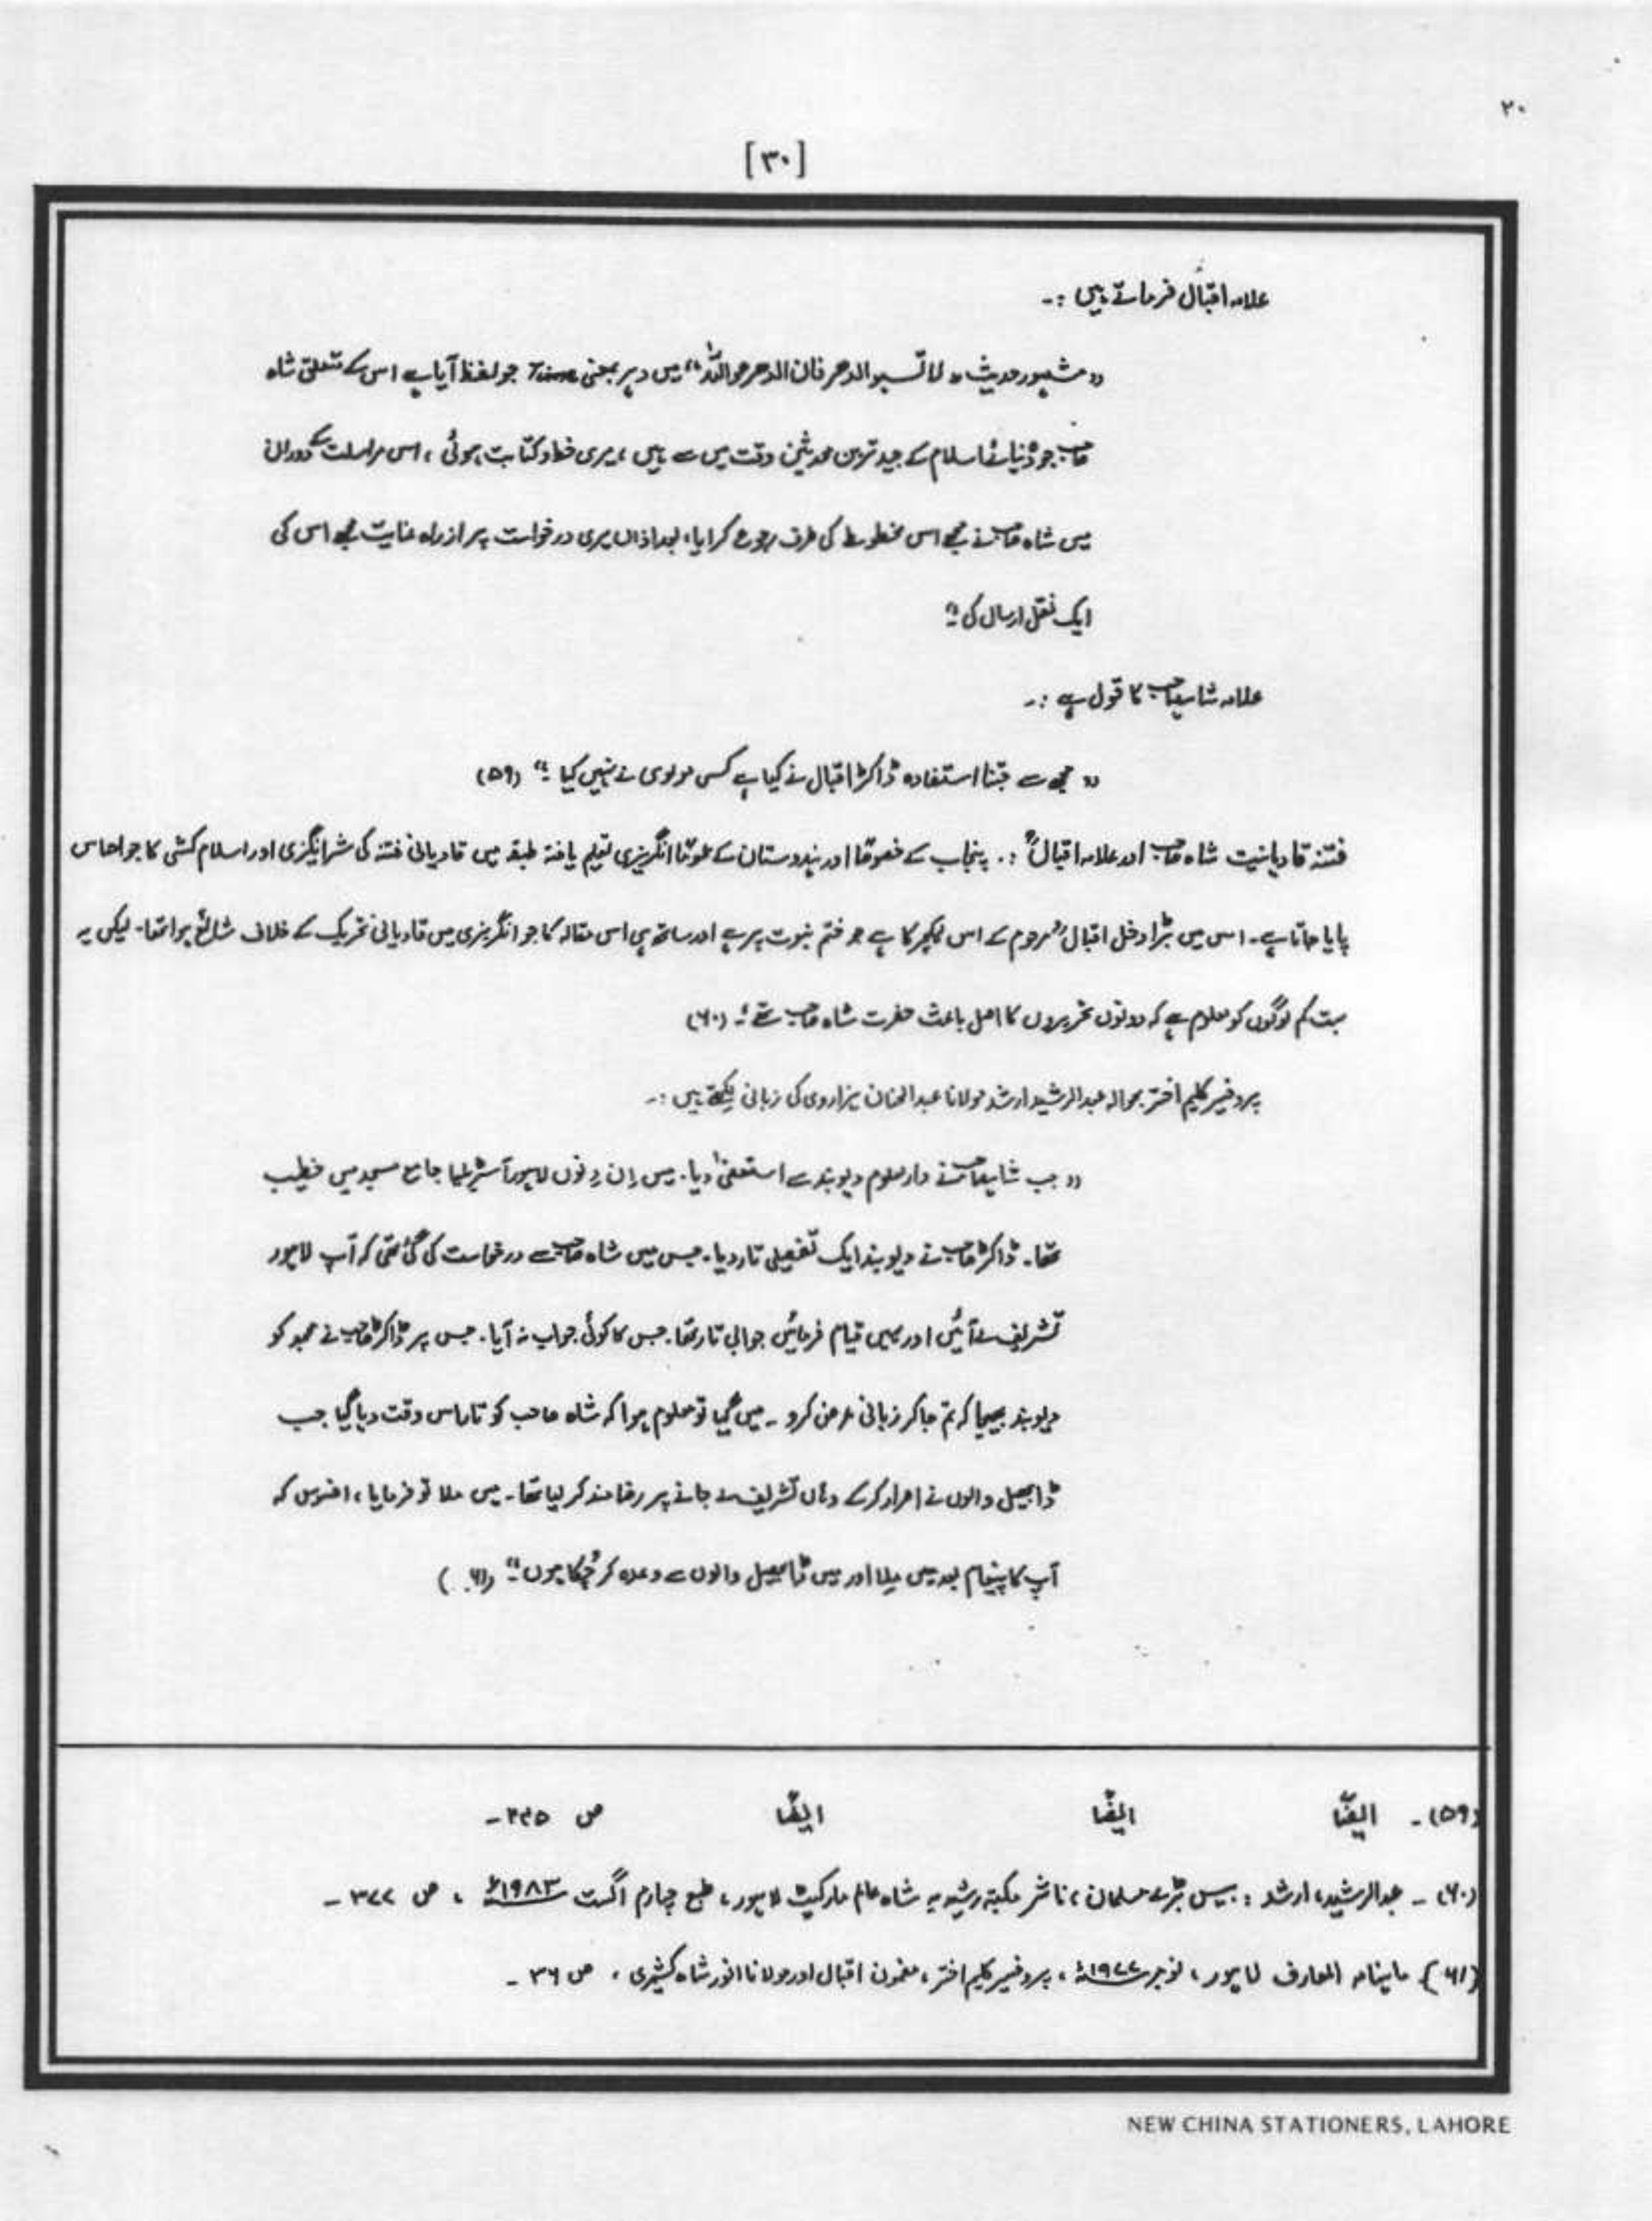 ۲۰
[۳۰]
علامہ اقبالؒ فرماتے ہیں :۔
"مشہور حدیث "لا تسبو الدھر فان الدھر ھو اللہ" میں دہر بمعنی Time جو لفظ آیا ہے اس کے متعلق شاہ
صاحب جو دُنیائے اسلام کے جید ترین محدثین وقت میں سے ہیں، میری خط و کتابت ہوئی، اس مراسلت کے دوران
میں شاہ صاحب نے مجھے اس مخطوطے کی طرف رجوع کرایا، بعد ازاں میری درخواست پر از راہ عنایت مجھے اس کی
ایک نقل ارسال کی"۔
علامہ شاہصاحب کا قول ہے :۔
"مجھ سے جتنا استفادہ ڈاکٹر اقبال نے کیا ہے کسی مولوی نے نہیں کیا۔" (۵۹)
فتنہ قادیانیت شاہ صاحب اور علامہ اقبالؒ :۔ پنجاب کے خصوصاً اور ہندوستان کے عموماً انگریزی تعلیم یافتہ طبقہ میں قادیانی فتنہ کی شرانگیزی اور اسلام کشی کا جو احساس
پایا جاتا ہے۔ اس میں بڑا دخل اقبالؒ مرحوم کے اس لیکچر کا ہے جو ختم نبوت پر ہے اور ساتھ ہی اس مقالہ کا جو انگریزی میں قادیانی تحریک کے خلاف شائع ہوا تھا۔ لیکن یہ
بہت کم لوگوں کو معلوم ہے کہ دونوں تحریروں کا اصل باعث حضرت شاہ صاحب تھے۔" (۶۰)
پروفیسر کلیم اختر بحوالہ عبدالرشید ارشد مولانا عبدالحنان ہزاروی کی زبانی لکھتے ہیں :۔
"جب شاہصاحب نے دارلعلوم دیوبند سے استعفیٰ دیا۔ میں اِن دِنوں لاہور آسٹریلیا جامع مسجد میں خطیب
تھا۔ ڈاکٹر صاحب نے دیوبند ایک تفصیلی تار دیا۔ جس میں شاہ صاحب سے درخواست کی گئی تھی کہ آپ لاہور
تشریف لے آئیں اور یہیں قیام فرمائیں جوابی تار تھا۔ جس کا کوئی جواب نہ آیا۔ جس پر ڈاکٹر صاحب نے مجھ کو
دیوبند بھیجا کہ تم جا کر زبانی عرض کرو ۔ میں گیا تو معلوم ہوا کہ شاہ صاحب کو تار اس وقت دیا گیا جب
ڈابھیل والوں نے اصرار کرکے وہاں تشریف لے جانے پر رضامند کر لیا تھا۔ میں ملا تو فرمایا، افسوس کہ
آپ کا پیغام بعد میں مِلا اور میں ڈابھیل والوں سے وعدہ کر چُکا ہوں"۔ (۶۱)
(۵۹)۔ ایضًا ایضًا ایضًا ص ۳۴۵۔
(۶۰)۔ عبدالرشید، ارشد : بیس بڑے مسلمان، ناشر مکتبہ رشیدیہ شاہ عالم مارکیٹ لاہور، طبع چہارم اگست ۱۹۸۳ء ، ص ۳۷۷۔
(۶۱) ماہنامہ المعارف لاہور، نومبر ۱۹۷۷ء، پروفیسر کلیم اختر، مضمون اقبال اور مولانا انور شاہ کشمیری ، ص ۳۶۔
NEW CHINA STATIONERS, LAHORE